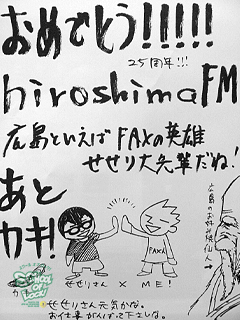 おめでとう!!!!!
25周年!!!
hiroshima FM
広島といえばFAXの英雄
せせり大先輩だね!
あと
カキ!
広島のお好み焼仙人→
FAXA
せせりさん × ME!
SCHOOL OF LOCK!
せせりさん元気かな。
お仕事がんばって下さいな。